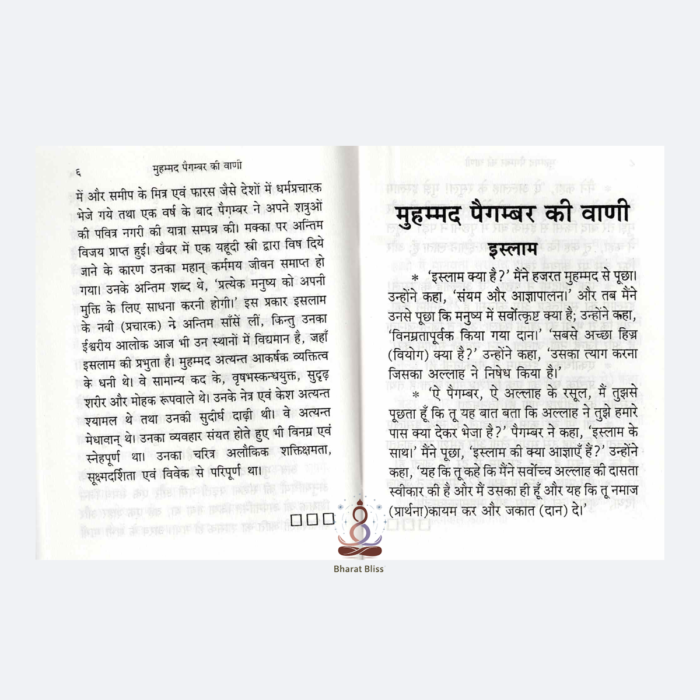 ६
मुहम्मद पैगम्बर की वाणी
में और समीप के मित्र एवं फारस जैसे देशों में धर्मप्रचारक
भेजे गये तथा एक वर्ष के बाद पैग़म्बर ने अपने शत्रुओं
की पवित्र नगरी की यात्रा सम्पन्न की। मक्का पर अन्तिम
विजय प्राप्त हुई। खैबर में एक यहूदी स्त्री द्वारा विष दिये
जाने के कारण उनका महान् कर्ममय जीवन समाप्त हो
गया। उनके अन्तिम शब्द थे, 'प्रत्येक मनुष्य को अपनी
मुक्ति के लिए साधना करनी होगी।' इस प्रकार इसलाम
के नबी (प्रचारक) ने अन्तिम साँसें लीं, किन्तु उनका
ईश्वरीय आलोक आज भी उन स्थानों में विद्यमान है, जहाँ
इसलाम की प्रभुता है। मुहम्मद अत्यन्त आकर्षक व्यक्तित्व
के धनी थे। वे सामान्य कद के, वृषभस्कन्धयुक्त, सुदृढ़
शरीर और मोहक रूपवाले थे। उनके नेत्र एवं केश अत्यन्त
श्यामल थे तथा उनकी सुदीर्घ दाढ़ी थी। वे अत्यन्त
मेधावान् थे। उनका व्यवहार संयत होते हुए भी विनम्र एवं
स्नेहपूर्ण था। उनका चरित्र अलौकिक शक्तिक्षमता,
सूक्ष्मदर्शिता एवं विवेक से परिपूर्ण था।
□□□
मुहम्मद पैगम्बर की वाणी
इस्लाम
* 'इस्लाम क्या है?' मैंने हजरत मुहम्मद से पूछा।
उन्होंने कहा, 'संयम और आज्ञापालना।' और तब मैंने
उनसे पूछा कि मनुष्य में सर्वोत्कृष्ट क्या है; उन्होंने कहा,
'विनम्रतापूर्वक किया गया दान।' 'सबसे अच्छा हिज्र
(वियोग) क्या है?' उन्होंने कहा, 'उसका त्याग करना
जिसका अल्लाह ने निषेध किया है।'
* 'ऐ पैगम्बर, ऐ अल्लाह के रसूल, मैं तुझसे
पूछता हूँ कि तू यह बात बता कि अल्लाह ने तुझे हमारे
पास क्या देकर भेजा है?' पैगम्बर ने कहा, 'इस्लाम के
साथ।' मैंने पूछा, 'इसलाम की क्या आज्ञाएँ हैं?' उन्होंने
कहा, 'यह कि तू कहे कि मैंने सर्वोच्च अल्लाह की दासता
स्वीकार की है और मैं उसका ही हूँ और यह कि तू नमाज
(प्रार्थना)कायम कर और जकात (दान) दे।'
Bharat Bliss